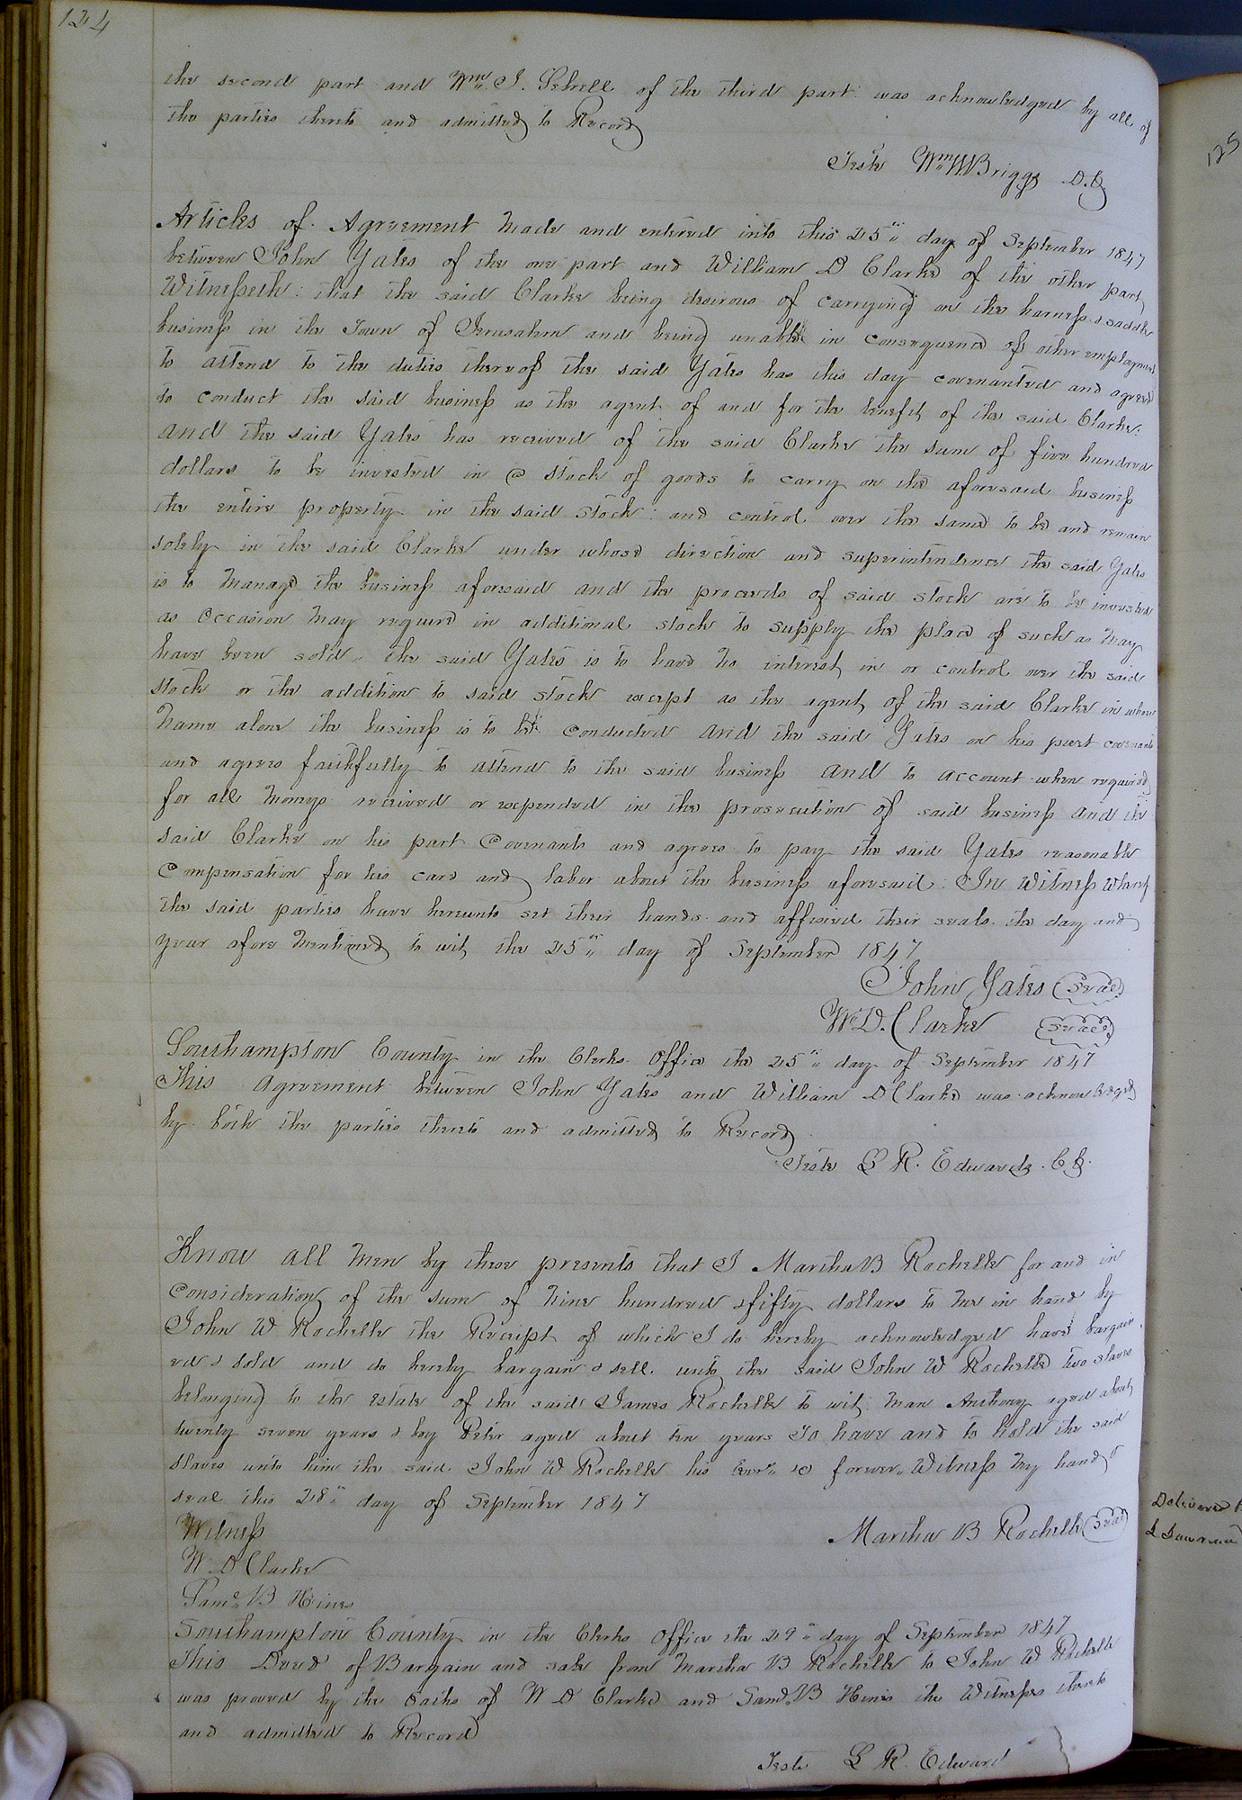 124
the second part and Wm J. Sebrell of the third part was acknowledged by all of
the parties thereto and admitted to Record
Teste Wm W Briggs D.C
Articles of Agreement Made and entered into this 25th day of September 1847
between John Yates of the one part and William D Clarke of the other part
Witnesseth: that the said Clarke being desirous of carrying on the harness & saddle
business in the Town of Jerusalem and being unable in consequence of other employment
to attend to the duties thereof the said Yates has this day covenanted and agreed
to conduct the said business as the agent of and for the benefit of the said Clarke:
and the said Yates has received of the said Clarke the sum of five hundred
dollars to be invested in a stock of goods to carry on the aforesaid business
the entire property in the said stock: and control over the same to be and remain
solely in the said Clarke under whose direction and superintendence the said Yates
is to manage the business aforesaid and the proceeds of said stock are to be invested
as occasion May require in additional stock to supply the place of such as May
have been sold. the said Yates is to have no interest in or control over the said
stock or the addition to said stock except as the agent of the said Clarke in whose
name alone the business is to be conducted and the said Yates on his part covenants
and agrees faithfully to attend to the said business and to account when required
for all Moneys received or expended in the prosecution of said business and the
said Clarke on his part Covenants and agrees to pay the said Yates reasonable
Compensation for his care and labor about the business aforesaid: In Witness Whereof
the said parties have hereunto set their hands and affixed their seals the day and
year afore Mentioned to wit the 25th day of September 1847
John Yates (Seal)
W. D. Clarke (Seal)
Southampton County in the Clerks Office the 25th day of September 1847
This Agreement between John Yates and William D Clarke was acknowledged
by both the parties thereto and admitted to Record
Teste L R. Edwards. C.C.
Know all Men by these presents that I Martha B Rochelle for and in
consideration of the sum of Nine hundred & fifty dollars to me in hand by
John W Rochelle the Receipt of which I do hereby acknowledged have bargain
ed & sold and do hereby bargain & sell unto the said John W Rochelle two slaves
belonging to the estate of the said James Rochelle to wit: Man Anthony aged about
twenty seven years & boy Peter aged about ten years To have and to hold the said
slaves unto him the said John W Rochelle his forever. Witness My hand &
seal this 28th day of September 1847
Witness
Martha B Rochelle (Seal)
W D Clarke
Saml B Hines
Southampton County in the Clerks Office the 29th day of September 1847
This Deed of Bargain and sale from Martha B Rochelle to John W Rochelle
was proved by the oaths of W D Clarke and Saml B Hines the Witnesses thereto
and admitted to Record
Teste L R. Edward
125
Delivered